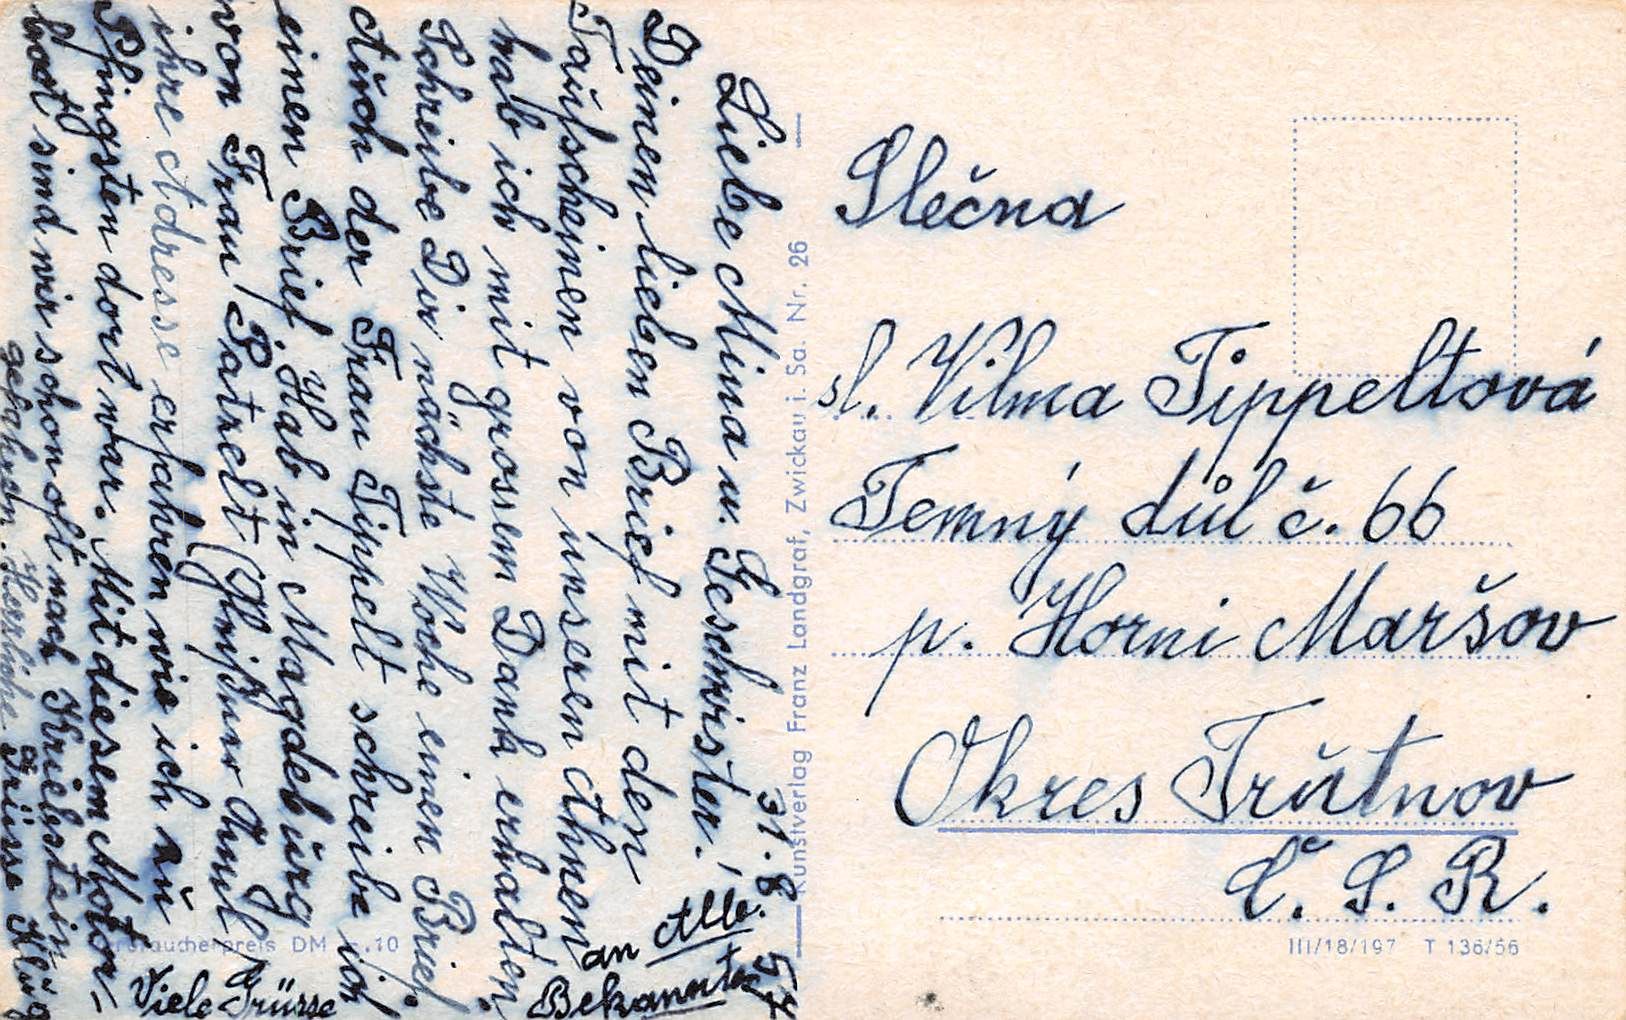 31. 8. 57
Liebe Mina u. Geschwister!
Deinen lieben Brief mit den
Taufscheinen von unseren Ahnen
hab ich mit grossem Dank erhalten.
Schreibe Dir nächste Woche einen Brief.
Auch der Frau Tippelt schreibe ich
einen Brief. Hab in Magdeburg
von Frau Patzelt
ihre Adresse erfahren wie ich zu
Pfingsten dort war. Mit diesem Motor-
boot sind wir schon oft nach Kriebstein
gefahren. Herzliche Grüsse
Viele Grüsse
an Alle
Bekannten
Kunstverlag Franz Landgraf, Zwickau i. Sa. Nr. 26
Verbraucherpreis DM -.10
Slečna
sl. Vilma Tippeltová
Temný důl č. 66
p. Horni Maršov
Okres Trůtnov
Č. S. R.
III/18/197 T 136/56